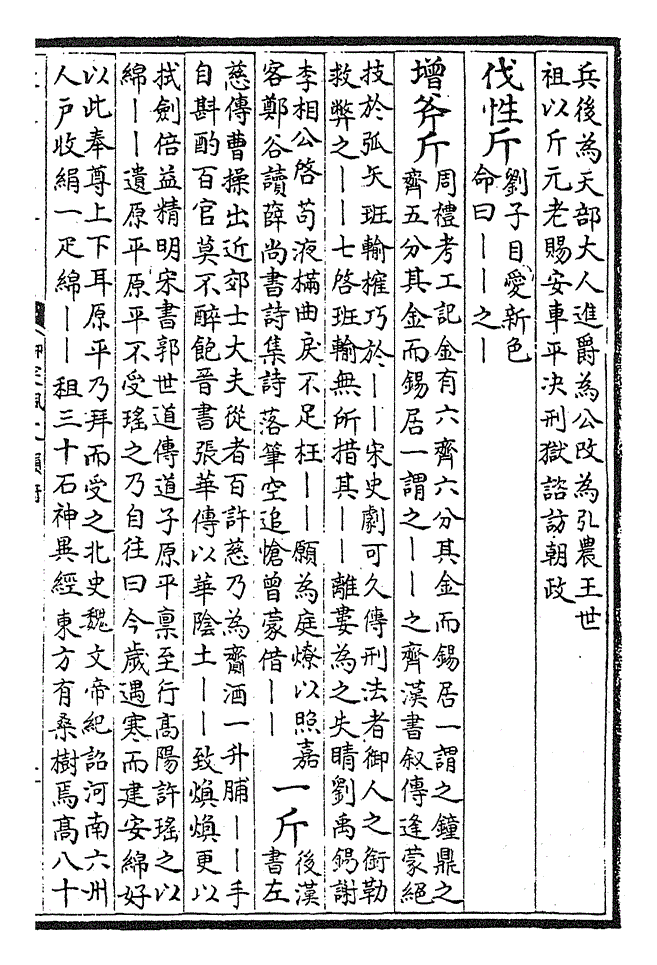 兵後為天部大人進爵為公改為弘農王世
祖以斤元老賜安車平決刑獄諮訪朝政
伐性斤
劉子目愛新色
命曰丨丨之丨
增斧斤
周禮考工記金有六齊六分其金而錫居一謂之鐘鼎之
齊五分其金而錫居一謂之丨丨之齊漢書叙傳逢蒙絕
技於弧矢班輸搉巧於丨丨宋史劇可久傳刑法者御人之銜勒
救弊之丨丨七啓班輸無所措其丨丨離婁為之失睛劉禹錫謝
李相公啓苟液樠曲戾不足枉丨丨願為庭燎以照嘉
客鄭谷讀薛尚書詩集詩落筆空追愴曾蒙借丨丨
一斤
後漢
書左
慈傳曹操出近郊士大夫從者百許慈乃為齎酒一升脯丨丨手
自斟酌百官莫不醉飽晉書張華傳以華陰土丨丨致煥煥更以
拭劍倍益精明宋書郭世道傳道子原平禀至行高陽許瑤之以
綿丨丨遺原平原平不受瑤之乃自往曰今歲遇寒而建安綿好
以此奉尊上下耳原平乃拜而受之北史魏文帝紀詔河南六州
人戶收絹一疋綿丨丨租三十石神異經東方有桑樹焉高八十